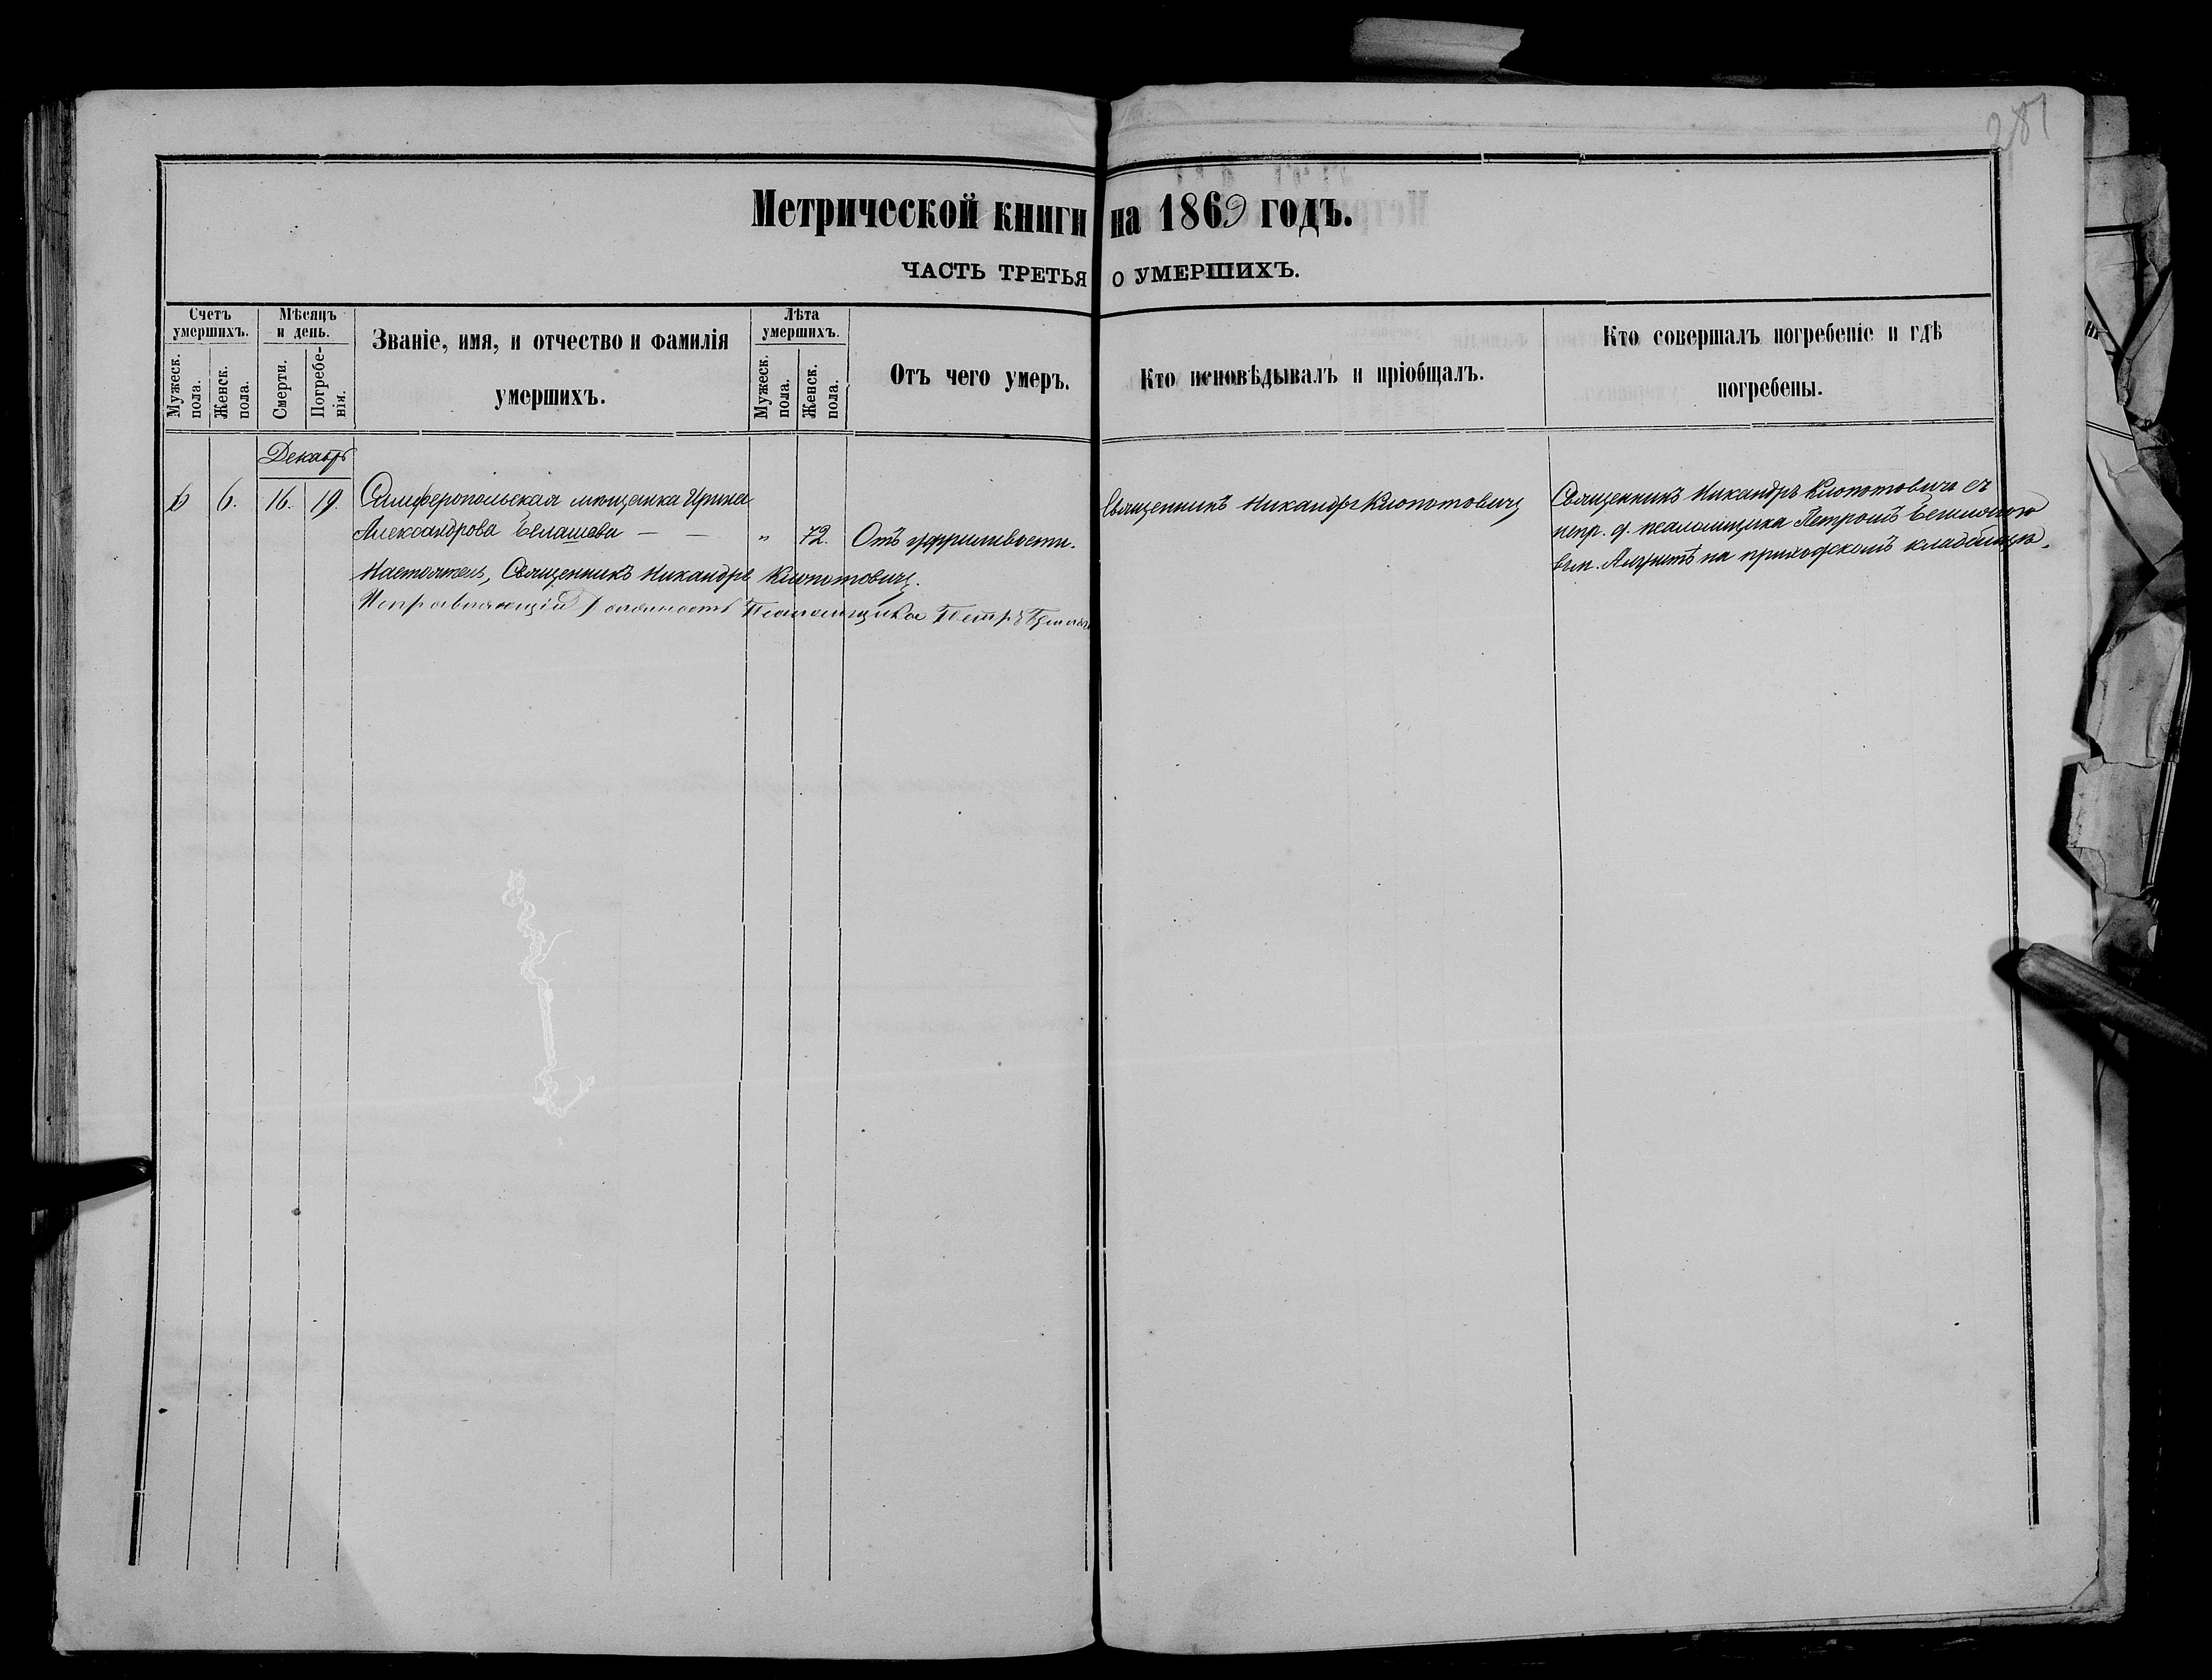 281
Метрической книги на 1869 годъ.
ЧАСТЬ ТРЕТЬЯ О УМЕРШИХЪ.
Счетъ умершихъ.
Мужеск. пола.
Женск. пола.
Мѣсяцъ и день.
Смерти.
Погребенія.
Званіе, имя, и отчество и фамилія
умершихъ.
Лѣта умершихъ.
Мужеск. пола.
Женск. пола.
Отъ чего умеръ.
Кто исповѣдывалъ и пріобщалъ.
Кто совершалъ погребеніе и гдѣ
погребены.
Декабрь
6. 16. 19. Симферопольская мѣщанка Ирина
Александрова Евлашева — — " 72. Отъ дряхлости.
Священникъ Никандръ Клопотовичъ
Священникъ Никандръ Клопотовичъ съ
испр. д. псаломщика Петромъ
на приходскомъ кладбищѣ.
Настоятель, Священникъ Никандръ Клопотовичъ.
Исправляющій Должность Псаломщика Петръ